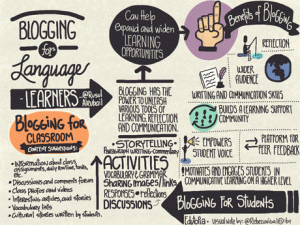 BLOGGING
for
Language
LEARNERS
BLOGGING FOR
CLASSROOM
CONTENT SUGGESTIONS:
• Information about class
assignments, daily routine, tasks,
etc.
• Discussions and comments forum
• Class photos and videos
• Interesting articles, and stories
• Vocabulary lists
• Cultural stories written by students.
Can Help
expand and widen
LEARNING
OPPORTUNITIES
BLOGGING HAS THE
POWER TO UNLEASH
VARIOUS TOOLS OF
LEARNING, REFLECTION
AND COMMUNICATION.
• STORYTELLING •
ACTIVITIES
VOCABULARY & GRAMMAR
SHARING IMAGES/links
RESPONSES • reflections
DISCUSSIONS
Benefits of Blogging
REFLECTION
WIDER
AUDIENCE
WRITING AND COMMUNICATION SKILLS
BUILDS A LEARNING SUPPORT
COMMUNITY
EMPOWERS
STUDENT VOICE
PLATFORM FOR
PEER FEEDBACK
MOTIVATES AND ENGAGES STUDENTS IN
COMMUNICATIVE LEARNING ON A HIGHER LEVEL
Blogging For Students